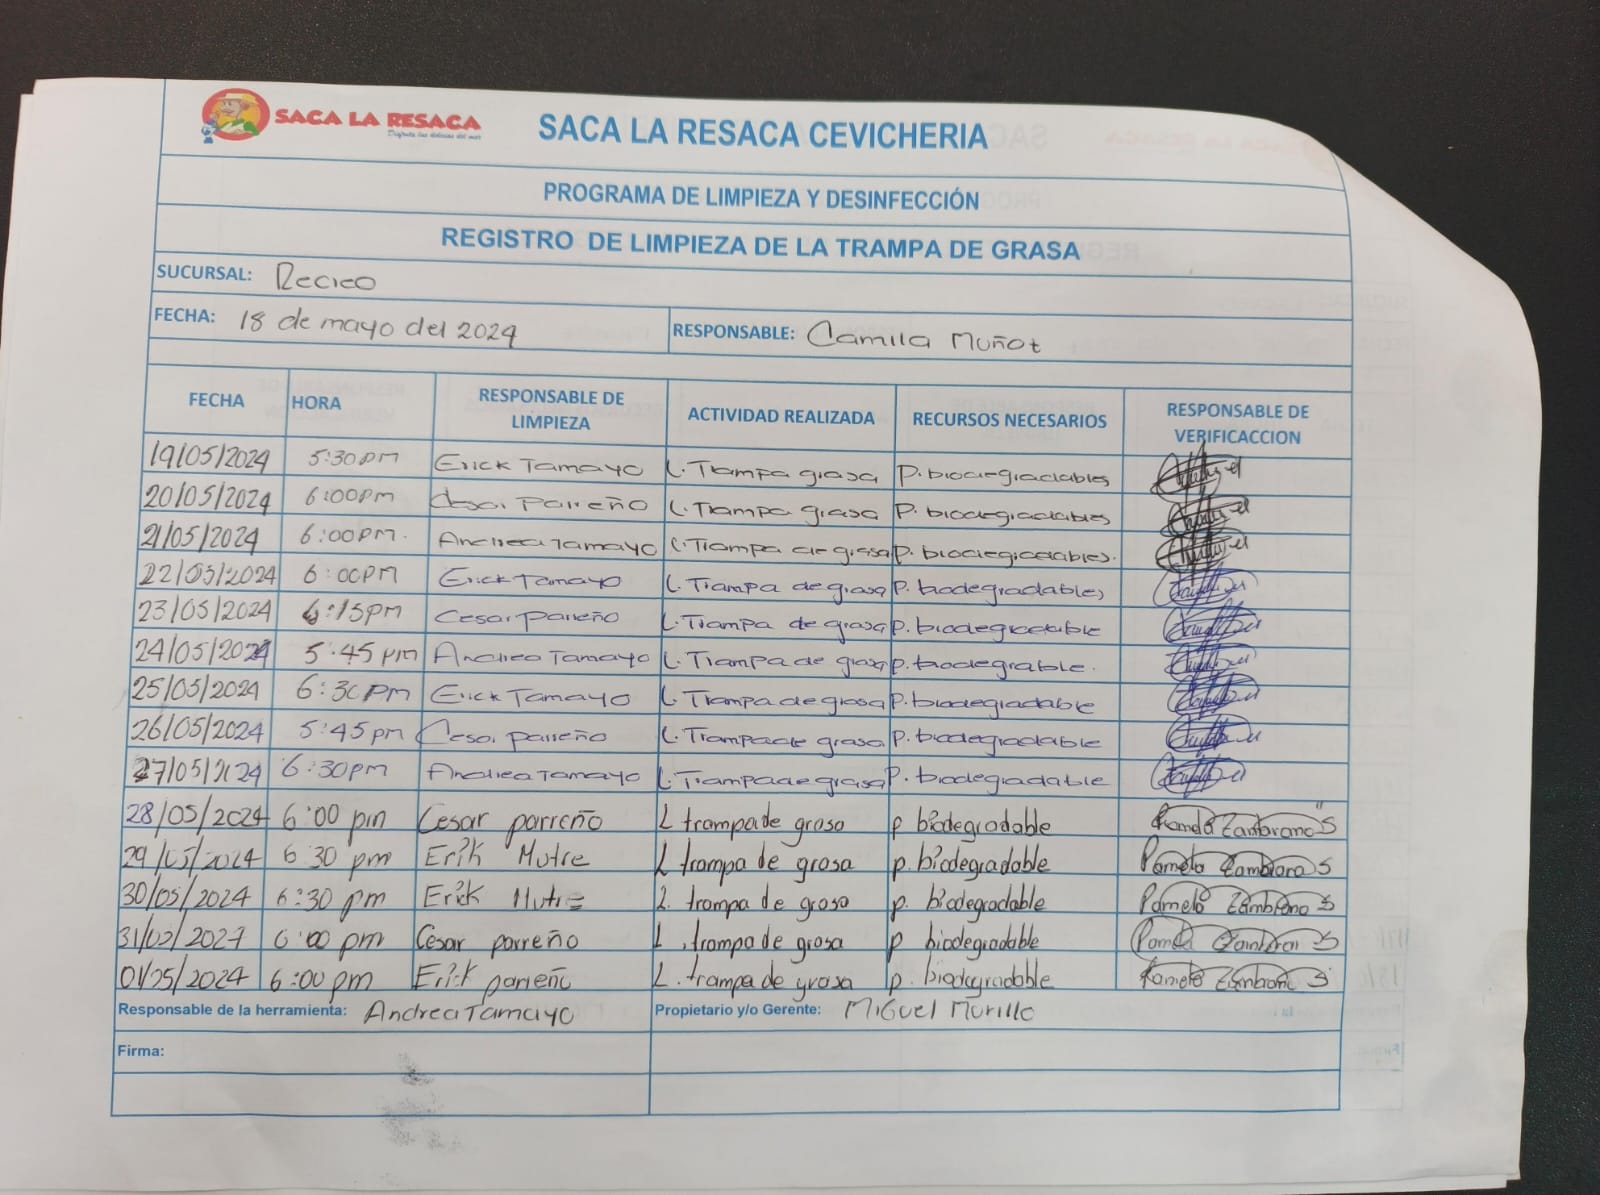 SACA LA RESACA
Disfruta las delicias del mar
SACA LA RESACA CEVICHERIA
PROGRAMA DE LIMPIEZA Y DESINFECCIÓN
REGISTRO DE LIMPIEZA DE LA TRAMPA DE GRASA
SUCURSAL: Recreo
FECHA: 18 de mayo del 2024 RESPONSABLE: Camila Muñoz
FECHA HORA RESPONSABLE DE LIMPIEZA ACTIVIDAD REALIZADA RECURSOS NECESARIOS RESPONSABLE DE VERIFICACCION
19/05/2024 5:30pm Erick Tamayo L. Trampa grasa P. biodegradables
20/05/2024 6:00pm Cesar Parreño L. Trampa grasa P. biodegradables
21/05/2024 6:00pm. Andrea Tamayo L. Trampa de grasa p. biodegradables.
22/05/2024 6:00PM Erick Tamayo L. Trampa de grasa P. biodegradables
23/05/2024 6:15pm Cesar parreño L. Trampa de grasa P. biodegradable
24/05/2024 5:45 pm Andrea Tamayo L. Trampa de grasa p. biodegrable.
25/05/2024 6:30pm Erick Tamayo L. Trampa de grasa P. biodegradable
26/05/2024 5:45pm Cesar parreño L. Trampa de grasa P. biodegradable
27/05/2024 6:30pm Andrea Tamayo L. Trampa de grasa P. biodegradable
28/05/2024 6:00 pm Cesar parreño L trampa de grasa p biodegradable Zambrano S
29/05/2024 6:30 pm Erik Mutre L trampa de grasa p. biodegradable Pamela Zambrano S
30/05/2024 6:30 pm Erick Mutre L. trampa de grasa p. biodegradable Pamela Zambrano S
31/05/2024 6:00 pm Cesar parreño L. trampa de grasa p biodegradable Pamela S
6:00pm Erick parreño L. trampa de grasa p. biodegradable Pamela Zambrano S
Responsable de la herramienta: Andrea Tamayo Propietario y/o Gerente: Miguel Murillo
Firma: